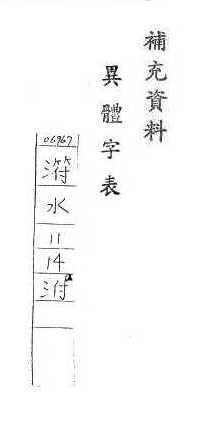 補充資料
異體字表
06967
水
11
14
泭